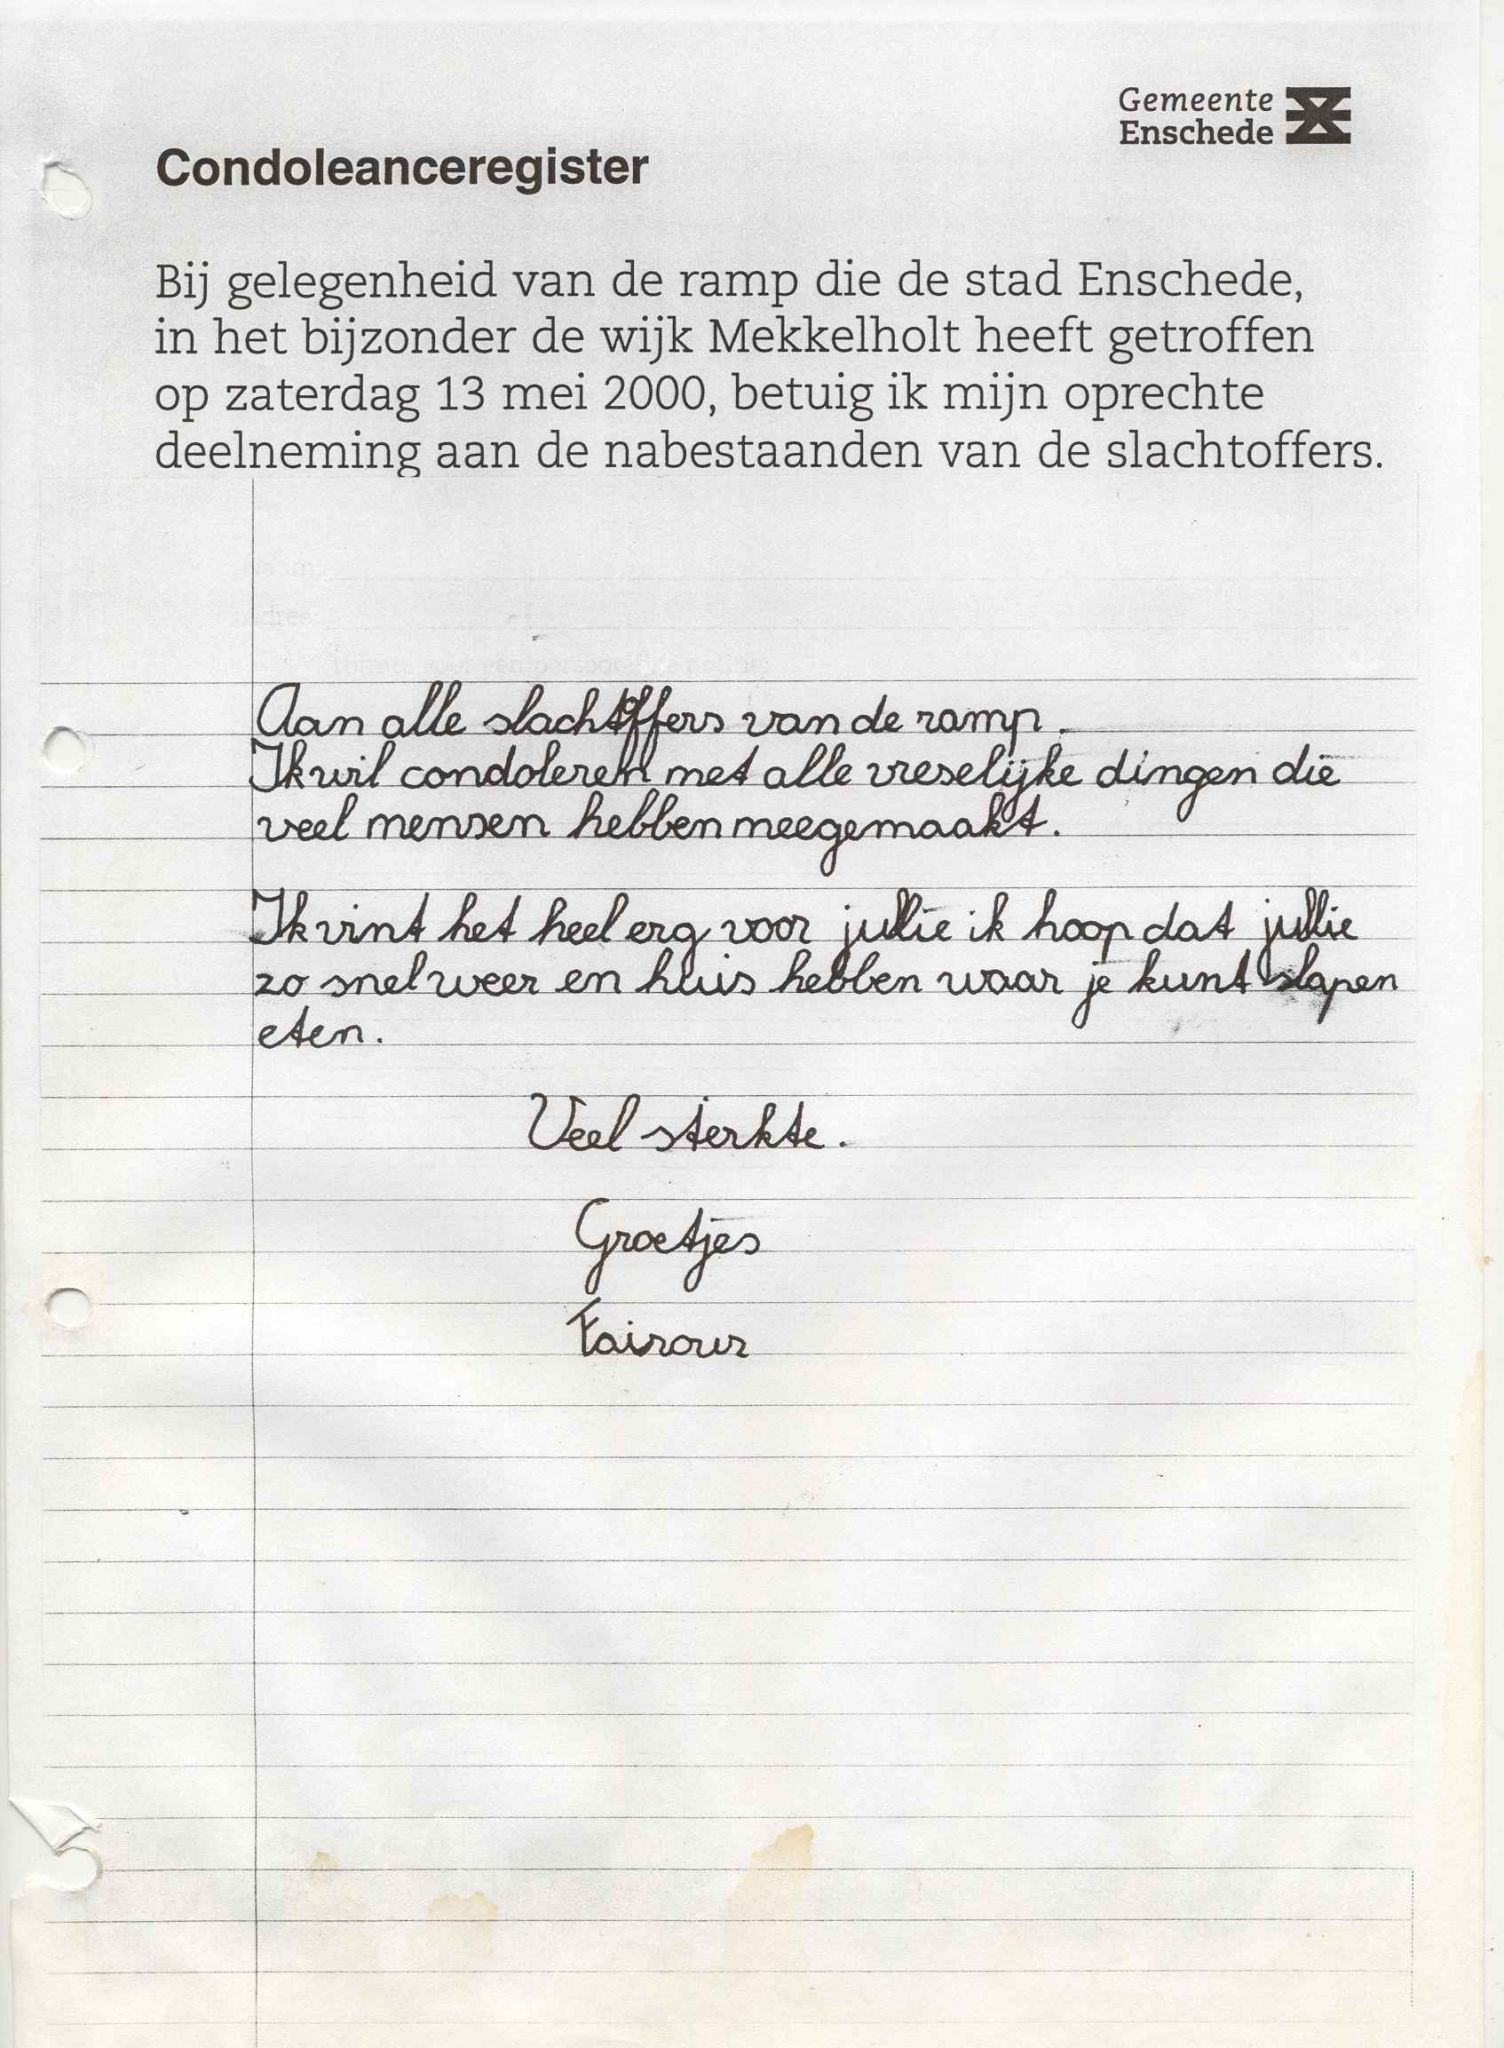 Gemeente
Enschede
Condoleanceregister
Bij gelegenheid van de ramp die de stad Enschede,
in het bijzonder de wijk Mekkelholt heeft getroffen
op zaterdag 13 mei 2000, betuig ik mijn oprechte
deelneming aan de nabestaanden van de slachtoffers.
Aan alle slachtoffers van de ramp.
Ik wil condoleren met alle vreselijke dingen die
veel mensen hebben meegemaakt.
Ik vint het heel erg voor jullie ik hoop dat jullie
zo snel weer en huis hebben waar je kunt slapen
eten.
Veel sterkte.
Groetjes